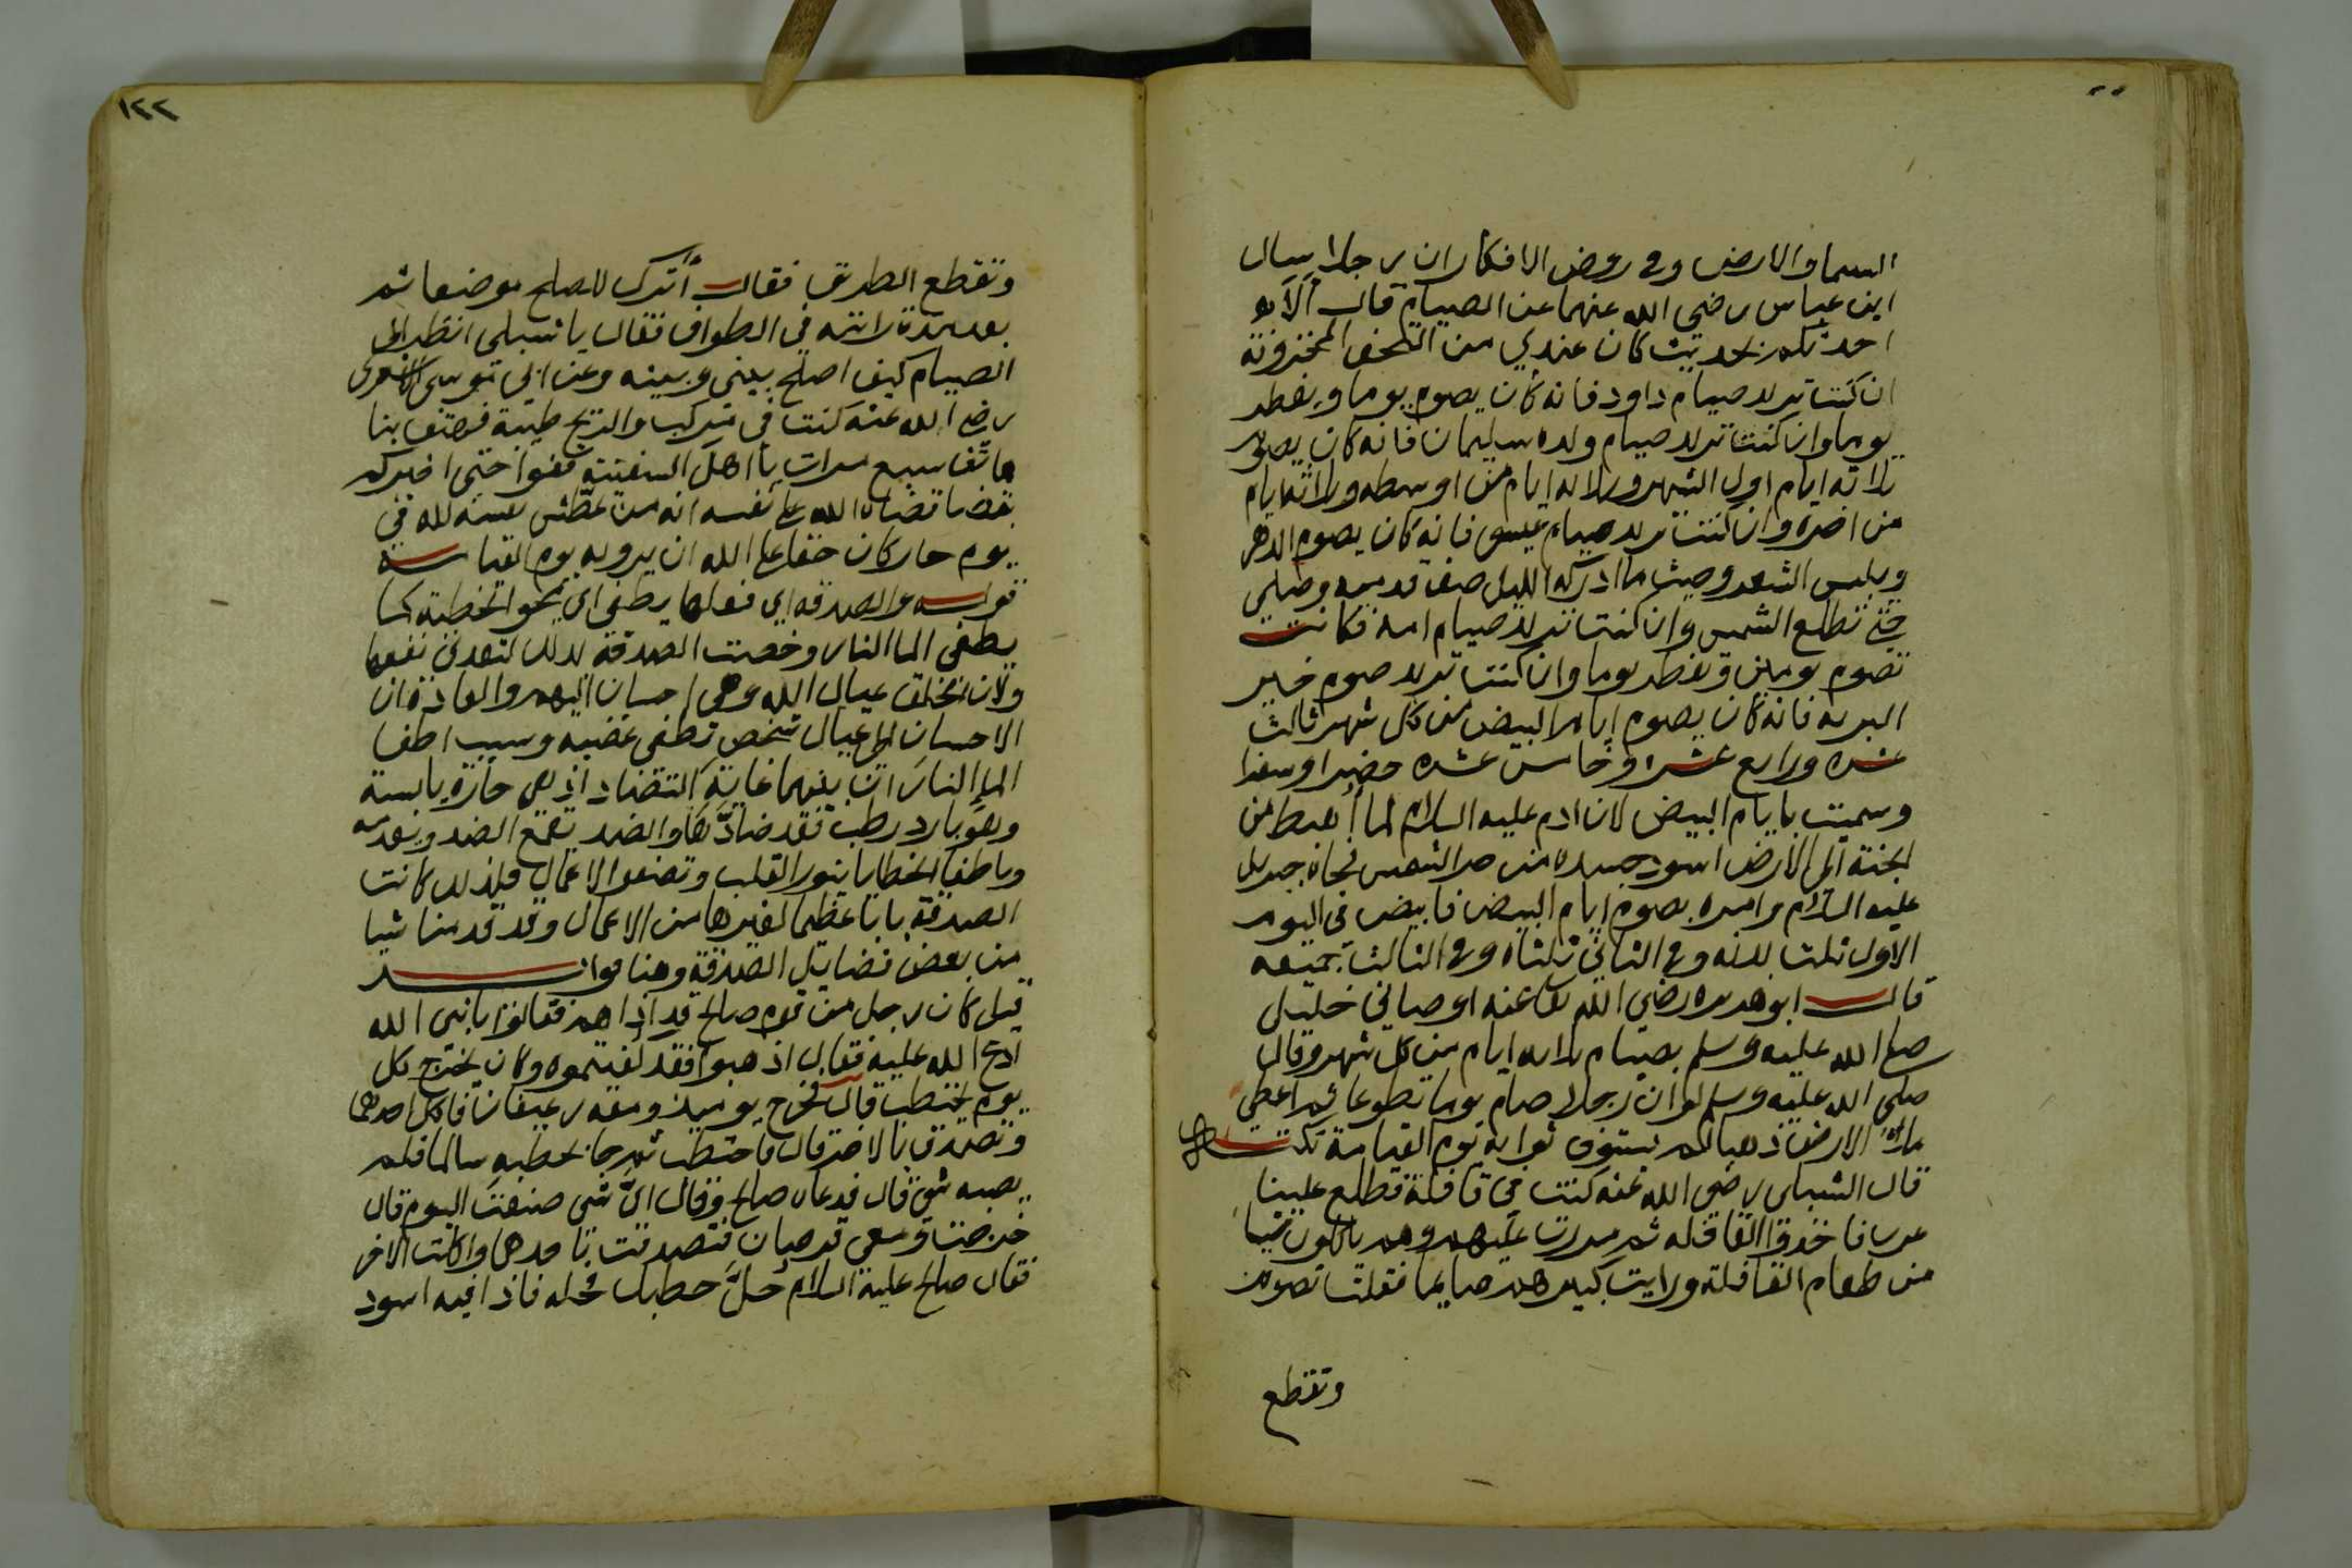 السما والارض وفي روض الافكار ان رجلا سال
ابن عباس رضي الله عنهما عن الصيام قال ألا
احدثكم بحديث كان عندي من التحف المخزونة
ان كنت تريد صيام داود فانه كان يصوم يوما ويفطر
يوما وان كنت تريد صيام ولده سليمان فانه كان يصوم
ثلاثه ايام اول الشهر وثلاثه ايام من اوسطه وثلاثه ايام
من اخره وان كنت تريد صيام عيسى فانه كان يصوم الدهر
ويلبس الشعر وحيث ما ادركه الليل صف قدميه وصلى
حتى تطلع الشمس وان كنت تريد صيام امه فكانت
تصوم يومين وتفطر يوما وان كنت تريد صوم خير
البريه فانه كان يصوم ايام البيض من كل شهر ثالث
عشره ورابع عشر وخامس عشره حضرا وسفرا
وسميت بايام البيض لان ادم عليه السلام لما أهبط من
الجنة الى الارض اسود جسده من حر الشمس فجاه جبريل
عليه السلام وامره بصوم ايام البيض فابيض في اليوم
الاول ثلث بدنه وفي الثاني ثلثاه وفي الثالث جميعه
قال ابو هريره رضي الله تعا عنه اوصاني خليلي
صلى الله عليه وسلم بصيام ثلاثه ايام من كل شهر وقال
صلى الله عليه وسلم لو ان رجلا صام يوما تطوعا ثم اعطي
ملأ الارض ذهبا لم يستوف ثوابه يوم القيامة نكتـــه
قال الشبلي رضي الله عنه كنت في قافلة فطلع علينا
عرب فاخذوا القافله ثم مررت عليهم وهم ياكلون شيا
من طعام القافلة ورايت كبيرهم صايما فقلت تصوم
وتقطع
١٢٢
وتقطع الطريق فقال أترك للصلح موضعا ثم
بعد مدة رايته في الطواف فقال يا شبلي انظر الى
الصيام كيف اصلح بيني وبينه وعن ابي موسى الاشعري
رضي الله عنه كنت في مركب والريح طيبة فهتف بنا
هاتف سبع مرات يا اهل السفينه قفوا حتى اخبركم
بقضا قضاه الله على نفسه انه من عطش نفسه لله في
يوم حار كان حقا على الله ان يرويه يوم القيامـــة
قولـــه والصدقه اي فعلها يطفي اي يمحو الخطية كما
يطفي الما النار وخصت الصدقة بذلك لتعدي نفعها
ولان الخلق عيال الله وهي احسان اليهم والعادة ان
الاحسان الى عيال شخص تطفي غضبه وسبب اطفا
الما النار ان بينهما غاية التضاد اذ هي حارة يابسة
وهو بارد رطب فقد ضادها والضد يقمع الضد ويعدمه
وباطفا الخطايا ينور القلب وتصفو الاعمال فلذلك كانت
الصدقة بابا عظيما لغيرها من الاعمال وقد قدمنا شيا
من بعض فضايل الصدقة وهنا فوايـــد
قيل كان رجل من قوم صالح قد اذاهم فقالوا يا نبي الله
ادع الله عليه فقال اذهبوا فقد كفيتموه وكان يخرج كل
يوم يحتطب قال فخرج يوميذ ومعه رغيفان فاكل احدهما
وتصدق بالاخر قال فاحتطب ثم جا بحطبه سالما فلم
يصبه شي قال فدعاه صالح وقال ايُّ شي صنعت اليوم قال
خرجت ومعي قرصان فتصدقت باحدهما واكلت الاخر
فقال صالح عليه السلام حلَّ حطبك فحله فاذا فيه اسود